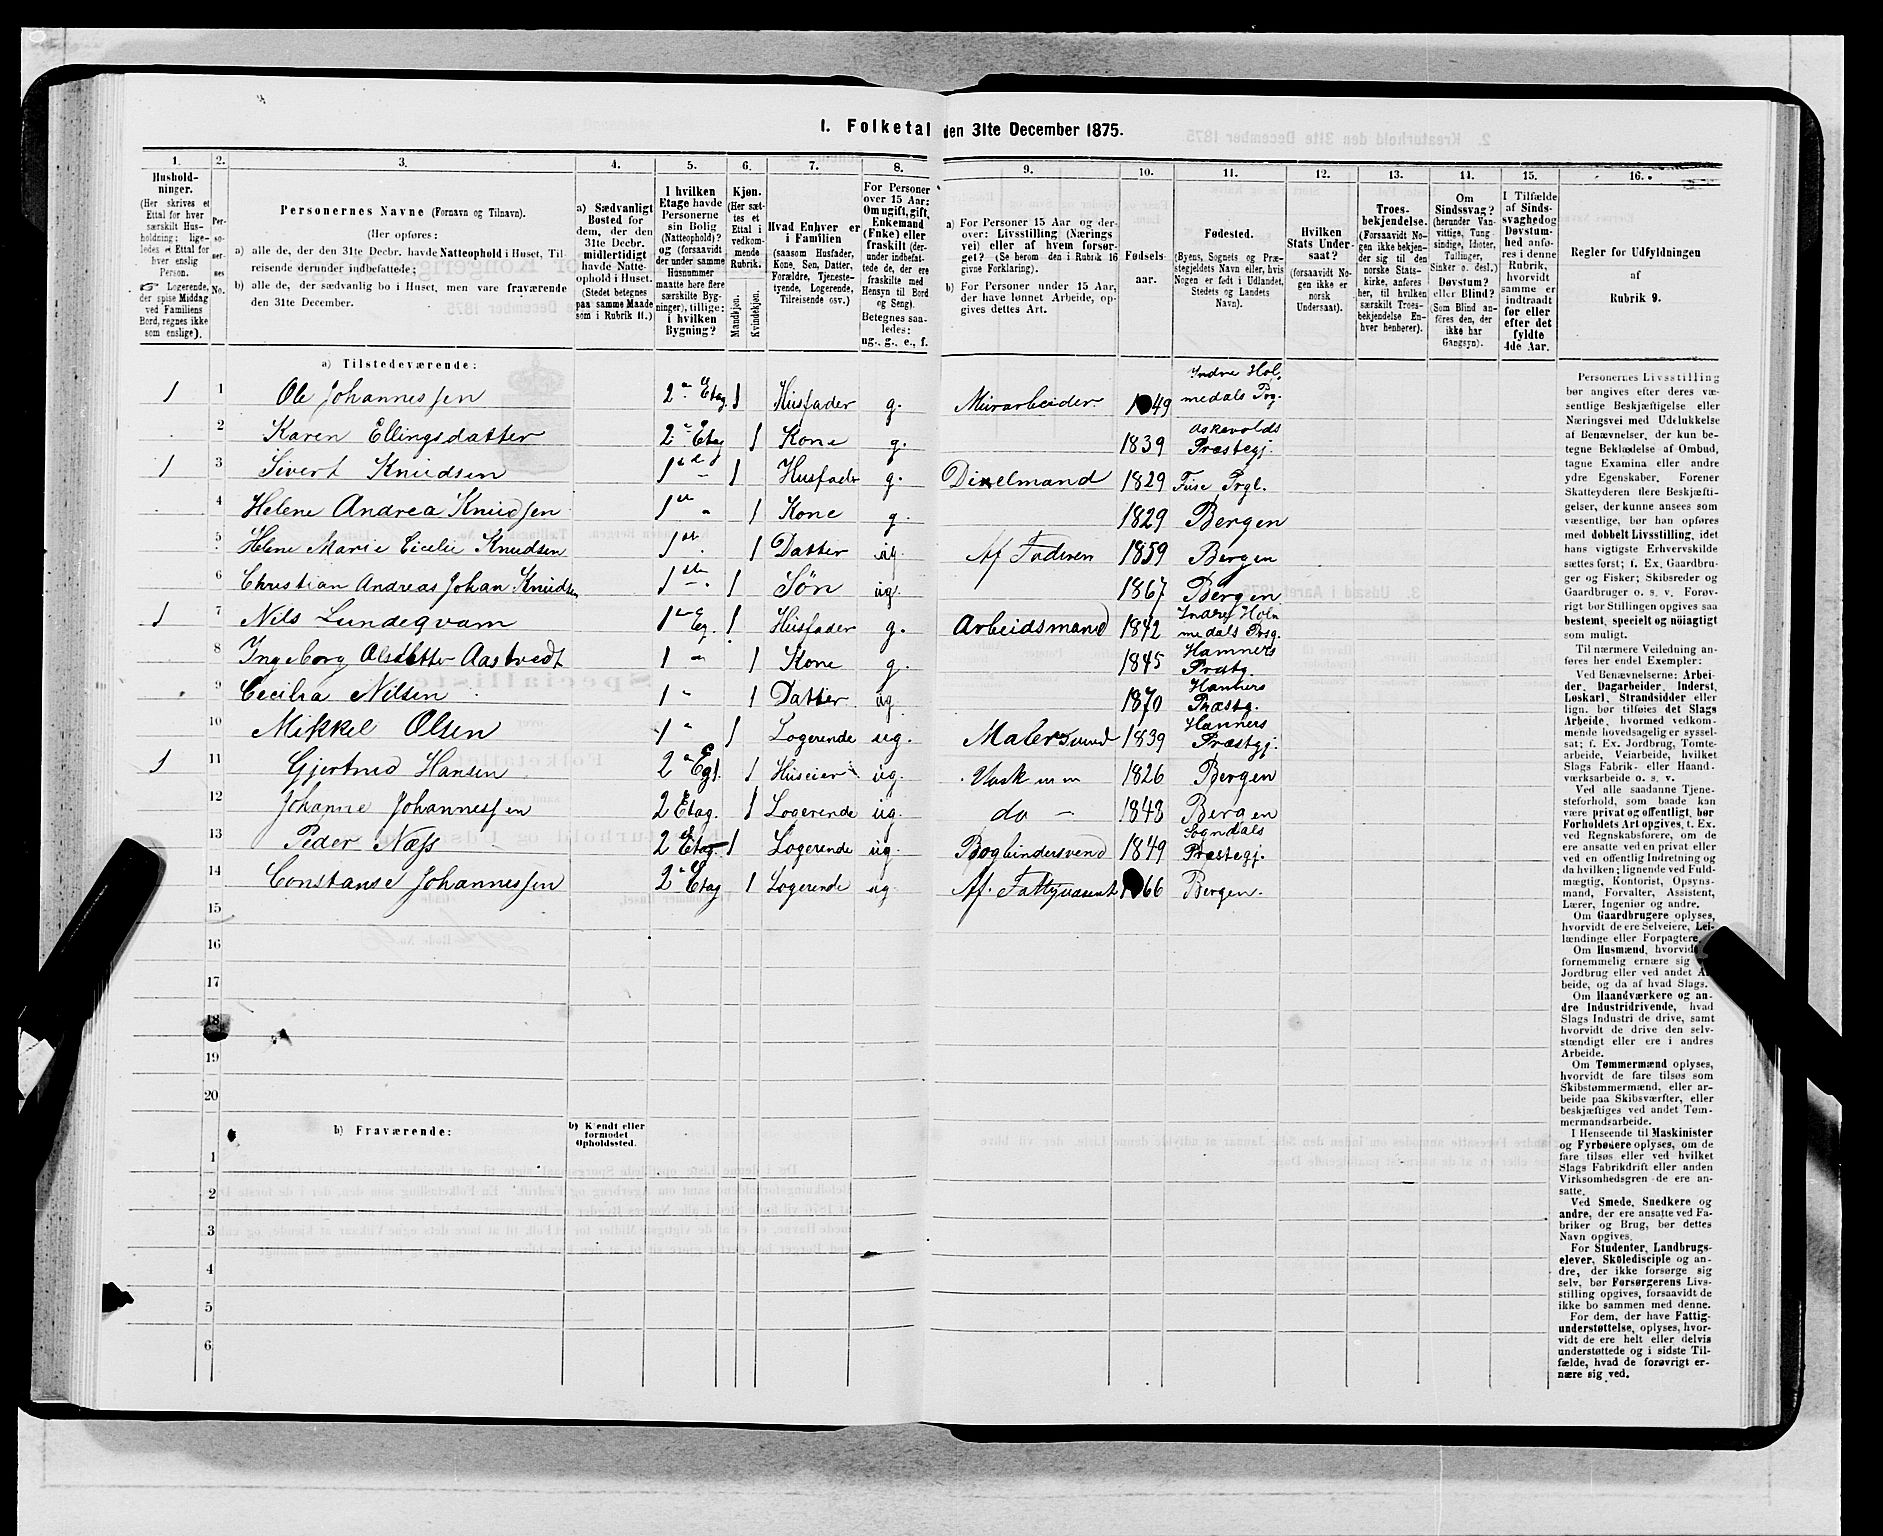 1. Folketal den 31te December 1875.
1. 2. 3. 4. 5. 6. 7. 8. 9. 10. 11. 12. 13. 14. 15. 16.
Hushold-
ninger.
(Her skrives et
Ettal for hver
særskilt Hus-
holdning; lige-
ledes et Ettal for
hver enslig
Person.
Logerende,
der spise Middag
ved Familiens
Bord, regnes ikke
som enslige).
Per-
so-
ner-
nes
No.
Personernes Navne (Fornavn og Tilnavn).
(Her opføres:
a) alle de, der den 31te Decbr. havde Natteophold i Huset, Til-
reisende derunder indbefattede;
b) alle de, der sædvanlig bo i Huset, men vare fraværende
den 31te December.
a) Sædvanligt
Bosted for
dem, der den
31te Decbr.
midlertidigt
havde Natte-
ophold i Huset.
(Stedet betegnes
paa samme Maade
som i Rubrik 11.)
I hvilken
Etage havde
Personerne
sin Bolig
(Natteophold)?
og (forsaavidt
der under samme
Husnummer
maatte høre flere
særskilte Byg-
ninger), tillige:
i hvilken
Bygning?
Kjøn.
(Her sæt-
tes et
Ettal i
vedkom-
mende
Rubrik.
Mandkjøn.
Kvindekjøn.
Hvad Enhver er
i Familien
(saasom Husfader,
Kone, Søn, Datter,
Forældre, Tjeneste-
tyende, Logerende,
Tilreisende osv.)
For Personer
over 15 Aar:
Om ugift, gift,
Enkemand
(Enke) eller
fraskilt (der-
under indbefat-
tede de, der ere
fraskilte med
Hensyn til Bord
og Seng).
Betegnes saa-
ledes:
ug., g., e., f.
a) For Personer 15 Aar og der-
over: Livsstilling (Nærings
vei) eller af hvem forsør-
get? (Se herom den i Rubrik 16
givne Forklaring).
b) For Personer under 15 Aar,
der have lønnet Arbeide, op-
gives dettes Art.
Fødsels-
aar.
Fødested.
(Byens, Sognets og Præ-
stegjeldets Navn eller, hvis
Nogen er født i Udlandet,
Stedets og Landets
Navn).
Hvilken
Stats Under-
saat?
(forsaavidt No-
gen ikke er
norsk
Undersaat).
Troes-
bekjendelse.
(Forsaavidt No-
gen ikke bekjen-
der sig til den
norske Stats-
kirke, anføres
her, til hvilken
særskilt Troes-
bekjendelse En-
hver henhører).
Om
Sindssvag?
(herunder Van-
vittige, Tung
sindige, Idioter,
Tullinger,
Sinker o. desl.)
Døvstum?
eller Blind?
(Som Blind an-
føres den, der
ikke har
Gangsyn).
I Tilfælde
af Sinds-
svaghed og
Døvstum-
hed anfø-
res i denne
Rubrik,
hvorvidt
samme er
indtraadt
før eller
efter det
fyldte
4de Aar.
Regler for Udfyldningen
af
Rubrik 9.
a) Tilstedeværende:
1 1 Ole Johannessen 2. Etag 1 Husfader g. Murarbeider 49 Indre Hol-
medals Prg.
2 Karen Ellingsdatter 2. Etag 1 Kone g. 1839 Askevolds
Præstegj.
1 3 Sivert Knudsen 1ste 1 Husfader g. Dixelmand 1829 Fuse Prgl.
4 Helene Andrea Knudsen 1 1 Kone g. 1829 Bergen
5 Helene Marie Cicelie Knudsen 1 1 Datter ug. Af Faderen 1859 Bergen
6 Christian Andreas Johan Knudsen 1 1 Søn ug. 1867 Bergen
1 7 Nils Lundeqvam 1 Eg. 1 Husfader g. Arbeidsmand 1842 Indre Hol
medals Prsg.
8 Ingeborg Olsdatter Aastvedt 1 " 1 Kone g. 1845 Hamners
Prstg.
9 Cecilia Nilsen 1 " 1 Datter ug. 1870 Hamners
Præstg.
10 Mikkel Olsen 1 " 1 Logerende ug. Malersvend 1839 Hamners
Præstgj.
1 11 Gjertrud Hansen 2 Egt. 1 Huseier ug. 1826 Bergen
12 Johanne Johannessen 2 Etag. 1 Logerende ug. do - 1848 Bergen
13 Peder Næss 2 Etag. 1 Logerende ug. Bogbindersvend 1849 Sogndals
Præstegj.
14 Constanse Johannessen 2 Etag 1 Logerende ug Af. Fattigvæsenet 66 Bergen.
15
16
17
18
19
20
b) Fraværende:
b) Kjendt eller
formodet
Opholdssted.
1
2
3
4
5
6
Personernes Livsstilling
bør angives efter deres væ-
sentlige Beskjæftigelse eller
Næringsvei med Udelukkelse
af Benævnelser, der kun be-
tegne Beklædelse af Ombud,
tagne Examina eller andre
ydre Egenskaber. Forener
Skatteyderen flere Beskjæfti-
gelser, der kunne ansees som
væsentlige, bør han opføres
med dobbelt Livsstilling, idet
hans vigtigste Erhvervskilde
sættes først; f. Ex. Gaardbru-
ger og Fisker; Skibsreder og
Gaardbruger o. s. v. Forøv-
rigt bør Stillingen opgives saa
bestemt, specielt og nöiagtigt
som muligt.
Til nærmere Veiledning an-
føres her endel Exempler:
Ved Benævnelserne: Arbei-
der, Dagarbeider, Inderst,
Løskarl, Strandsidder eller
lign. bør tilføies det Slags
Arbeide, hvormed vedkom-
mende hovedsagelig er syssel-
sat; f. Ex. Jordbrug, Tomte-
arbeide, Veiarbeide, hvilket
Slags Fabrik- eller Haand-
værksarbeide o. s. v.
Ved alle saadanne Tjene-
steforhold, som baade kan
være privat og offentligt, bør
Forholdets Art opgives, t. Ex.
ved Regnskabsførere, om de
ere ansatte ved en privat eller
ved en offentlig Indretning og
da hvilken; lignende ved Fuld-
mægtig, Kontorist, Opsyns-
mand, Forvalter, Assistent,
Lærer, Ingeniør og andre.
Om Gaardbrugere oplyses,
hvorvidt de ere Selveiere, Lei-
lændinge eller Forpagtere.
Om Husmænd, hvorvidt
fornemmelig ernære sig
Jordbrug eller ved andet Ar-
beide, og da af hvad Slags.
Om Haandværkere og an-
dre Industridrivende, hvad
Slags Industri de drive, samt
hvorvidt de drive den selv-
stændigt eller ere i andres
Arbeide.
Om Tømmermænd oplyses,
hvorvidt de fare tilsøs som
Skibstømmermænd, eller ar-
beide paa Skibsværfter, eller
beskjæftiges ved andet Tøm-
mermandsarbeide.
I Henseende til Maskinister
og Fyrbødere oplyses, om de
fare tilsøs eller ved hvilket
Slags Fabrikdrift eller anden
Virksomhedsgren de ere an-
satte.
Ved Smede, Snedkere og
andre, der ere ansatte ved Fa-
briker og Brug, bør dettes
Navn opgives.
For Studenter, Landbrugs-
elever, Skoledisciple og an-
dre, der ikke forsørge sig
selv, bør Forsørgerens Livs-
stilling opgives, forsaavidt de
ikke bo sammen med denne.
For dem, der have Fattig-
understøttelse, oplyses, hvor-
vidt de ere helt eller delvis
understøttede og i sidste Til-
fælde, hvad de forøvrigt er-
nære sig ved.